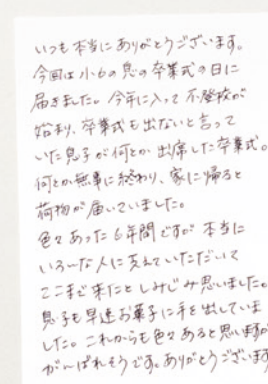 いつも本当にありがとうございます。
今回は小6の息の卒業式の日に
届きました。今年に入って不登校が
始まり、卒業式も出ないと言って
いた息子が何とか出席した卒業式。
何とか無事に終わり、家に帰ると
荷物が届いていました。
色々あった6年間ですが本当に
いろいろな人に支えていただいて
ここまで来たとしみじみ思いました。
息子も早速お菓子に手を出していま
した。これからも色々あると思いますが
がんばれそうです。ありがとうございます